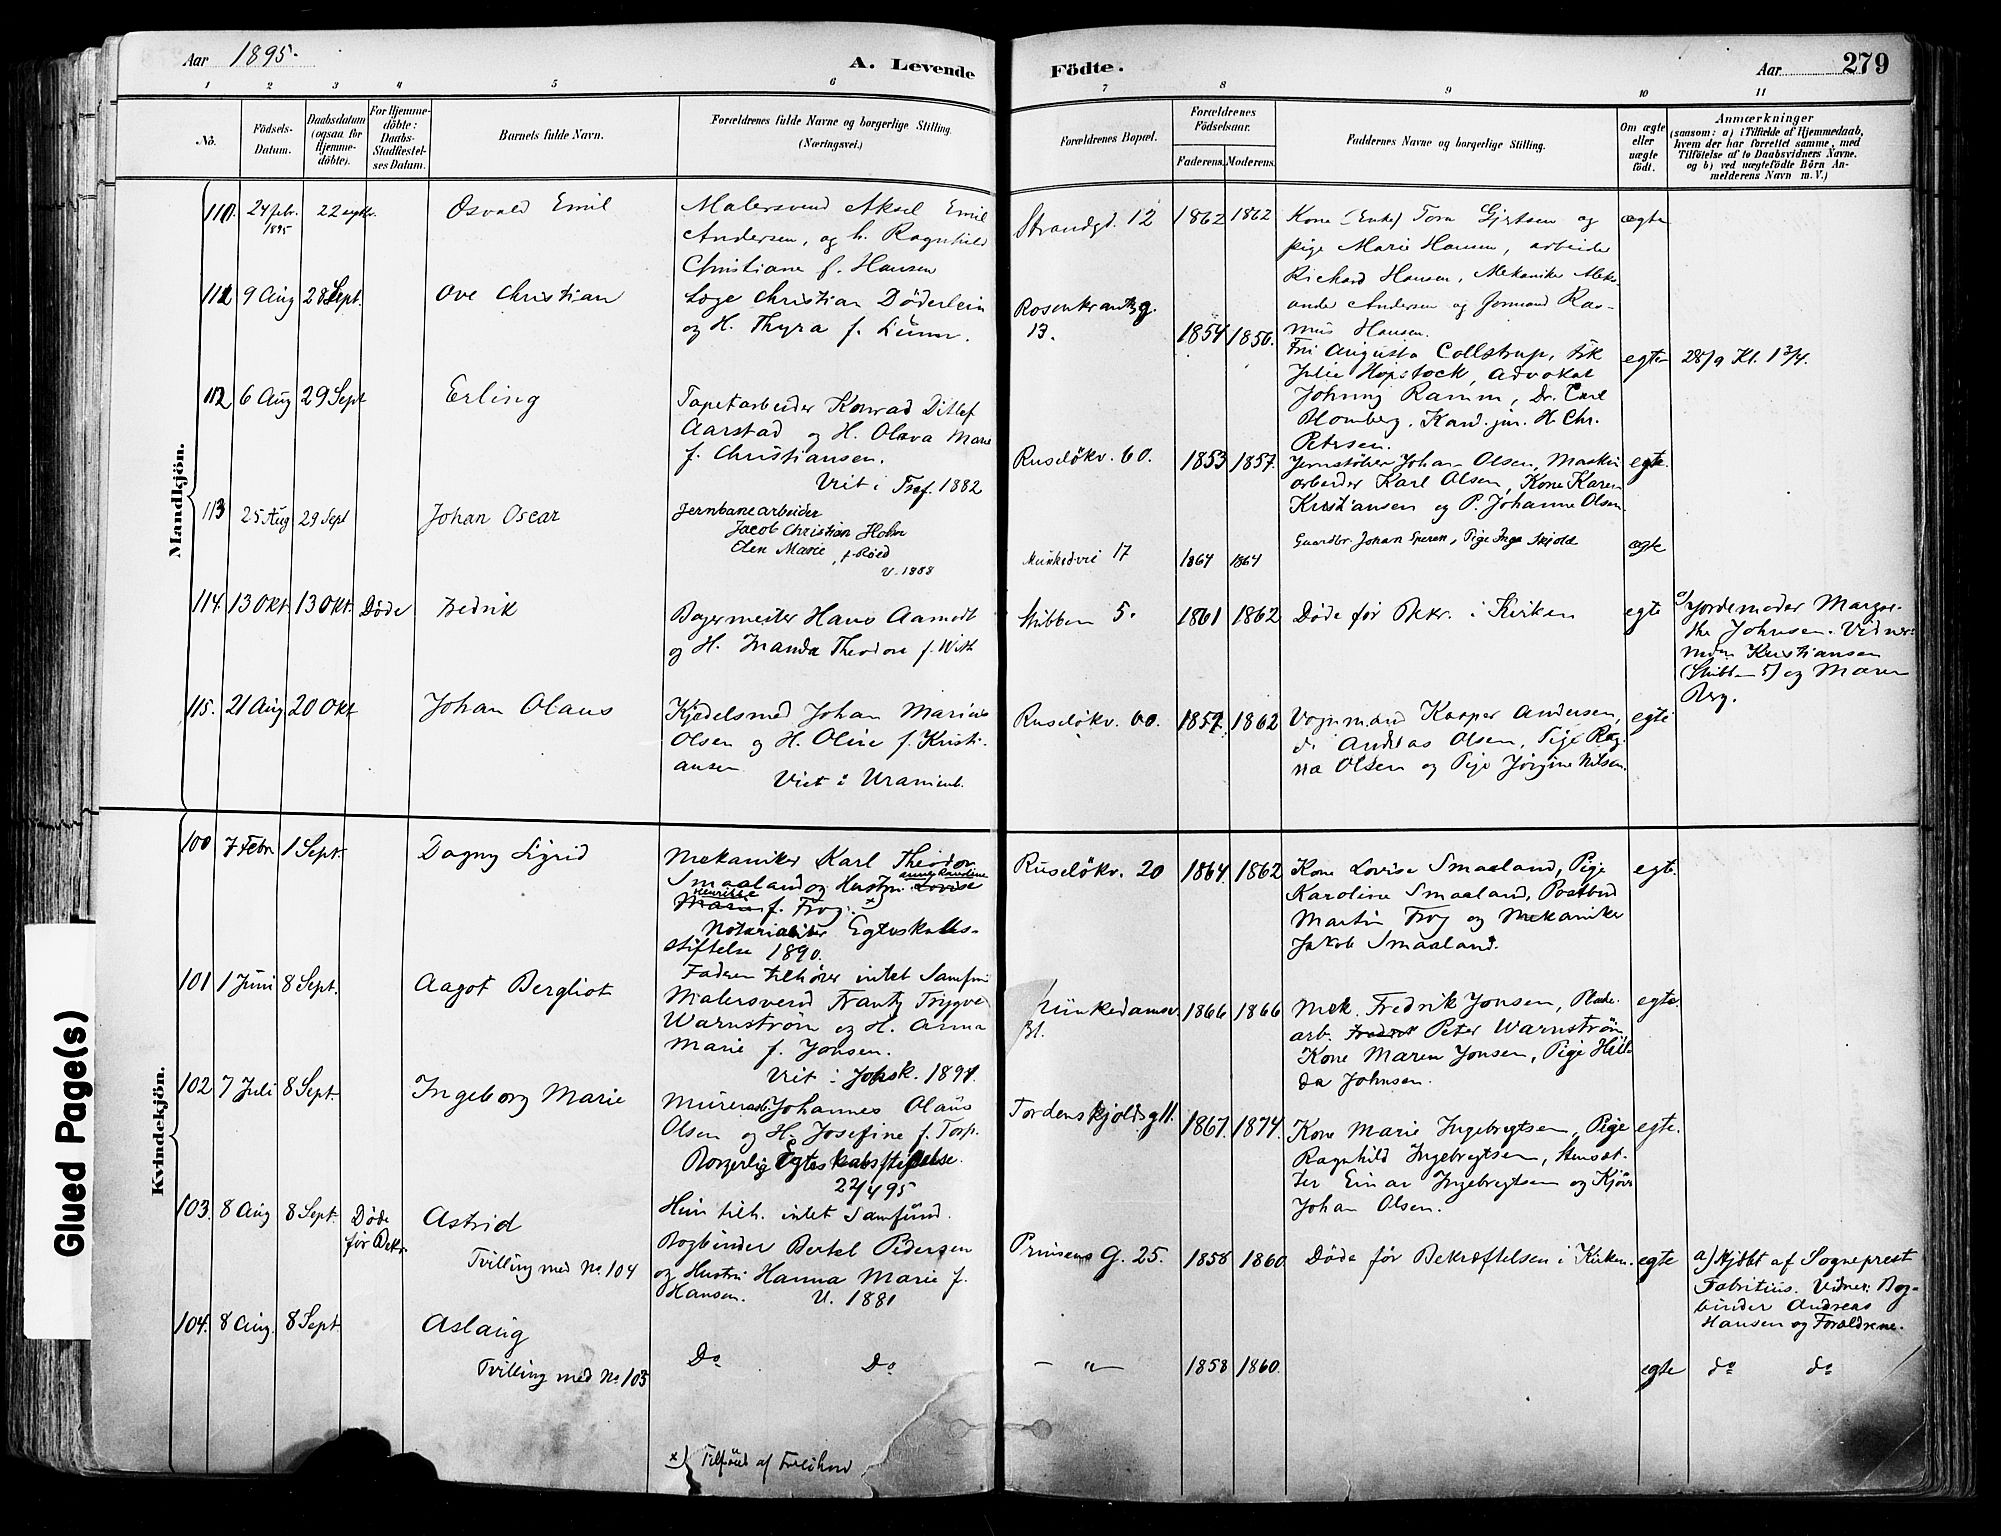 Aar 1895.
A. Levende
Födte.
Aar
279
1 2 3 4 5 6 7 8 9 10 11
No.
Födsels-
Datum.
Daabsdatum
(ogsaa for
Hjemme-
döbte).
For Hjemme-
döbte:
Daabs-
Stadfæstel-
ses Datum.
Barnets fulde Navn.
Forældrenes fulde Navne og borgerlige Stilling.
(Næringsvei.)
Forældrenes Bopæl.
Forældrenes
Födselsaar.
Faderens. Moderens.
Faddernes Navne og borgerlige Stilling.
Om ægte
eller
uægte
født.
Anmærkninger
(saasom: a) i Tilfælde af Hjemmedaab,
hvem der har forrettet samme, med
Tilføielse af to Daabsvidners Navne.
og b) ved uægtefødte Börn An-
melderens Navn m. V.)
Mandkjön.
110. 24 febr. 1895 22 septbr.
Osvald Emil
Malersvend Aksel Emil
Andersen, og h. Ragnhild
Christiane f. Hansen
Strandgt. 12 1862 1862
Kone (Enke) Tora Gjertsen og
pige Marie Hansen, arbeider
Richard Hansen, Mekaniker
Andersen og Formand Ras-
mus Hansen.
ægte
111 9 Aug 28 Sept.
Ove Christian
Læge Christian Döderlein
og H. Thyra f. Lunn.
Rosenkrantzg.
13. 1854 1856.
Fru Augusta Collstrup, frk
Julie Hopstock, Advokat
Johnny Ramm, Dr. Carl
Blomberg. Kand. jur. H. Chr.
Petersen.
egte 28/9 Kl. 1 3/4.
112 6 Aug 29 Sept
Erling
Tapetarbeider Konrad Ditlef
Aarstad og H. Olava Marie
f. Christiansen.
Viet i Tref. 1882
Ruselökv. 60. 1853 1857.
Jernstøber Johan Olsen, Maskin
arbeider Karl Olsen, Kone Karen
Kristiansen og P. Johanne Olsen
egte.
113 25 Aug 29 Sept
Johan Oscar
Jernbanearbeider
Jacob Christian Holm
Elen Marie, f. Röed
V. 1888
Munkedvei 17 1864 1864
Johan, Pige Inga Skjold
ægte
114. 13 Okt. 13 Okt. Döde
Fredrik
Bagermester Hans Aamodt
og H. Wanda Theodora f. With
Stubben 5. 1861 1862
Döde før Bekr. i Kirken
egte
a/ Jordemoder Margre-
the Johnsen. Vidner:
Kristiansen
(Stubben 5) og Maren
Berg.
115. 21 Aug 20 Okt
Johan Olaus
Kjedelsmed Johan Marius
Olsen og H. Oline f. Kristi-
ansen
Viet i Uranienb.
Ruselökv. 60. 1857. 1862
Vognmand Kasper Andersen,
do Andreas Olsen, Pige Rag-
na Olsen og Pige Jörgine Nilsen.
egte
Kvindekjön.
100 7 Febr 1 Sept.
Dagny Sigrid
Mekaniker Karl Theodor
Smaaland og Hustru Lovise
Anny Karoline
Henriette
Marie f. Frog. x)
Notarialiter Egteskabs-
stiftelse 1890.
Faderen tilhører intet Samfun
Ruselökv. 20 1864. 1862
Kone Lovise Smaaland, Pige
Karoline Smaaland, Postbud
Martin Frog og Mekaniker
Jakob Smaaland.
egte.
101 1 Juni 8 Sept.
Aagot Bergliot
Malersvend Frantz Trygve
Warnström og H. Anna
Marie f. Jonsen.
Viet i Jopsk. 1891.
Munkedamsv. 1866 1866
Mek. Fredrik Jonsen, Plade-
arb. Fredrik Peter Warnström,
Kone Maren Jonsen, Pige Hil-
da Johnsen.
egte
102 7 Juli 8 Sept.
Ingeborg Marie
Murerarb. Johannes Olaus
Olsen og H. Josefine f. Torp.
Borgerlig Egteskabsstiftelse.
22/4 95
Hun tilh. intet Samfund.
Tordenskjoldsg 11. 1867. 1874.
Kone Marie Ingebrigtsen, Pige
Ragnhild Ingebregtsen, Stensæt-
ter Einar Ingebregtsen og Kjör
Johan Olsen.
egte.
103. 8 Aug 8 Sept. Döde
før Bekr.
Astrid
Tvilling med No. 104
Bogbinder Bertel Pedersen
og Hustru Hanna Marie f.
Hansen. V. 1881
Prinsens G. 25. 1858 1860.
Döde før Bekræftelsen i Kirken.
egte
a) Hjdöbt af Sogneprest
Fabritius. Vidner: Bog-
binder Andreas
Hansen og Forældrene.
104. 8 Aug. 8 Sept.
Aslaug
Tvilling med No. 103
Do Do
— " — 1858 1860.
egte do do
x) Tilföiet af
Glued Page(s)